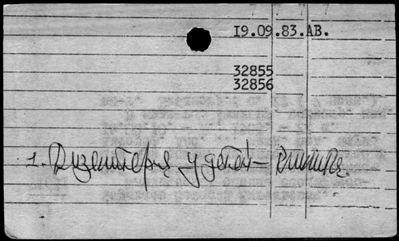 19.09.83.AB.
32855
32856
1. Дизентерия у детей – клиника.